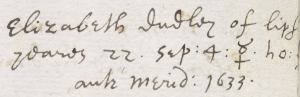 Elizabeth Dudley of lipf
yeares 22. Sep: 4: ☿. ho:
ante merid: 1633.